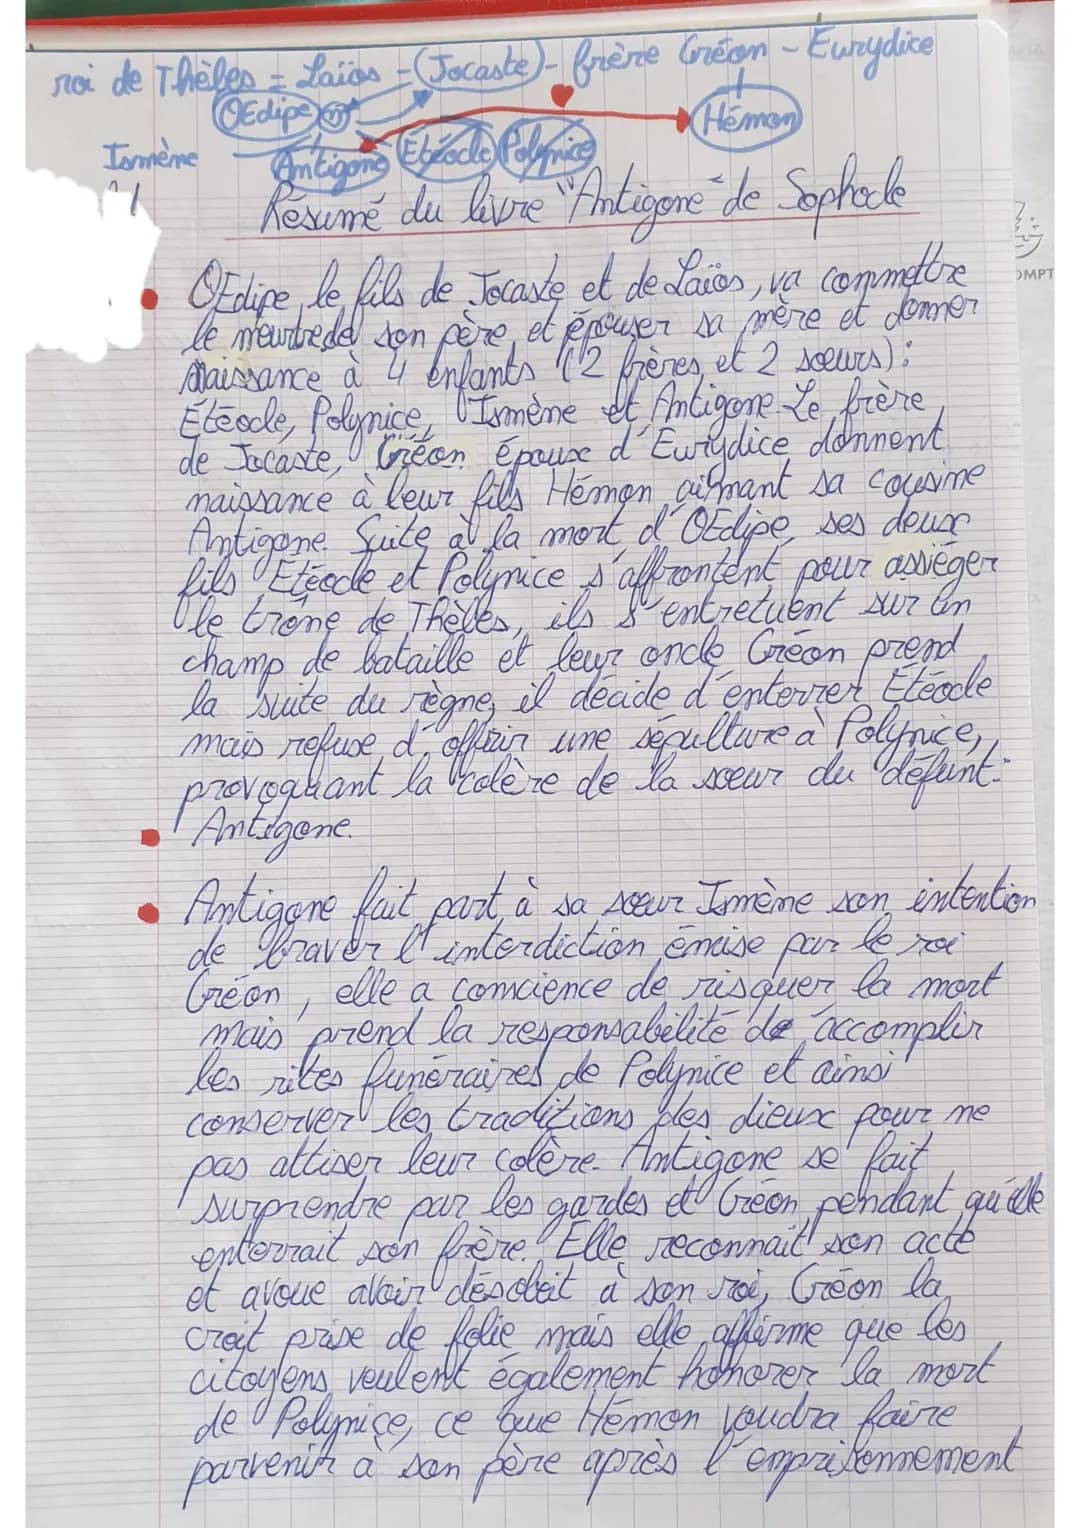 roi de Thèbes = Laïos - (Jocaste) - frère Créon - Eurydice
OEdipe Hémon
Ismène Antigone Etéocle Polynice
Résumé du livre "Antigone" de Sophocle
OMPT
OEdipe, le fils de Jocaste et de Laïos, va commettre
le meurtre de son père et épouser sa mère et donner
naissance à 4 enfants (2 frères et 2 soeurs) :
Etéocle, Polynice, Ismène et Antigone. Le frère
de Jocaste, Créon époux d'Eurydice donnent
naissance à leur fils Hémon aimant sa cousine
Antigone. Suite à la mort d'OEdipe, ses deux
fils Etéocle et Polynice s'affrontent pour assiéger
le trône de Thèbes, ils s'entretuent sur un
champ de bataille et leur oncle Créon prend
la suite du règne, il décide d'enterrer Etéocle
mais refuse d'offrir une sépulture à Polynice,
provoquant la colère de la soeur du défunt :
Antigone.
Antigone fait part à sa soeur Ismène son intention
de braver l'interdiction émise par le roi
Créon, elle a conscience de risquer la mort
mais prend la responsabilité de accomplir
les rites funéraires de Polynice et ainsi
conserver les traditions des dieux pour ne
pas attiser leur colère. Antigone se fait
surprendre par les gardes et Créon pendant qu'elle
enterrait son frère. Elle reconnait son acte
et avoue avoir désobéit à son roi, Créon la
croit prise de folie mais elle affirme que les
citoyens veulent également honorer la mort
de Polynice, ce que Hémon voudra faire
parvenir à son père après l'emprisonnement